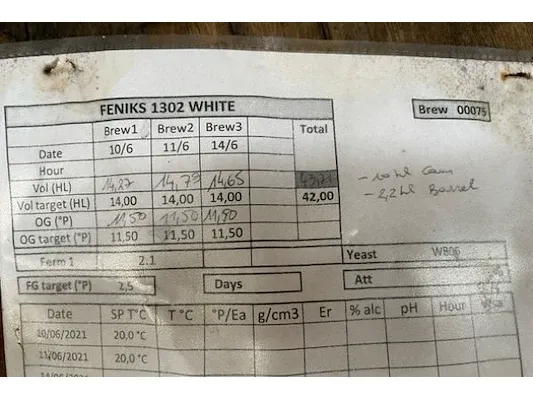 FENIKS 1302 WHITE
Brew 00075
Brew1 Brew2 Brew3 Total
Date 10/6 11/6 14/6
Hour
Vol (HL) 14,27 14,79 14,65 43,71
Vol target (HL) 14,00 14,00 14,00 42,00
OG (°P) 11,50 11,50 11,50
OG target (°P) 11,50 11,50 11,50
- 10 hl
- 2,2 hl Barrel
Ferm 1 2.1 Yeast WB06
FG target (°P) 2,5 Days Att
Date SP T°C T °C °P/Ea g/cm3 Er % alc pH Hour
10/06/2021 20,0 °C
11/06/2021 20,0 °C